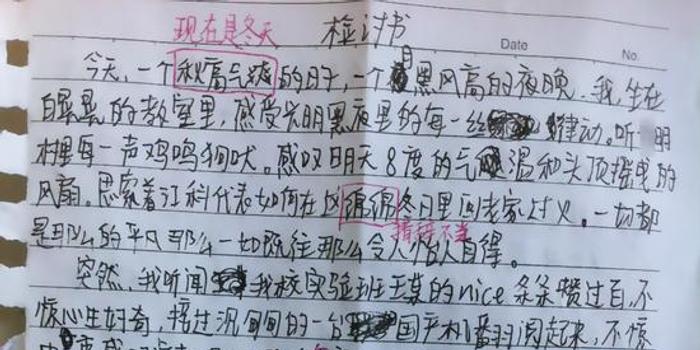 现在是冬天 检讨书
Date No.
今天,一个秋高气爽的日子,一个月黑风高的夜晚.我,坐在
的教室里,感受光明黑夜里的每一丝律动。听
村里每一声鸡鸣狗吠。感叹明天8度的气温和头顶摇曳的
风扇。思索着江科代表如何在绵绵冬日里回老家过。一切都
措辞不当
是那么的平凡那么一如既往那么令人怡然自得。
突然,我听闻我校实验班王某的nice条条赞过百,不
惊心生好奇,接过沉甸甸的一台国产机翻阅起来,不惊